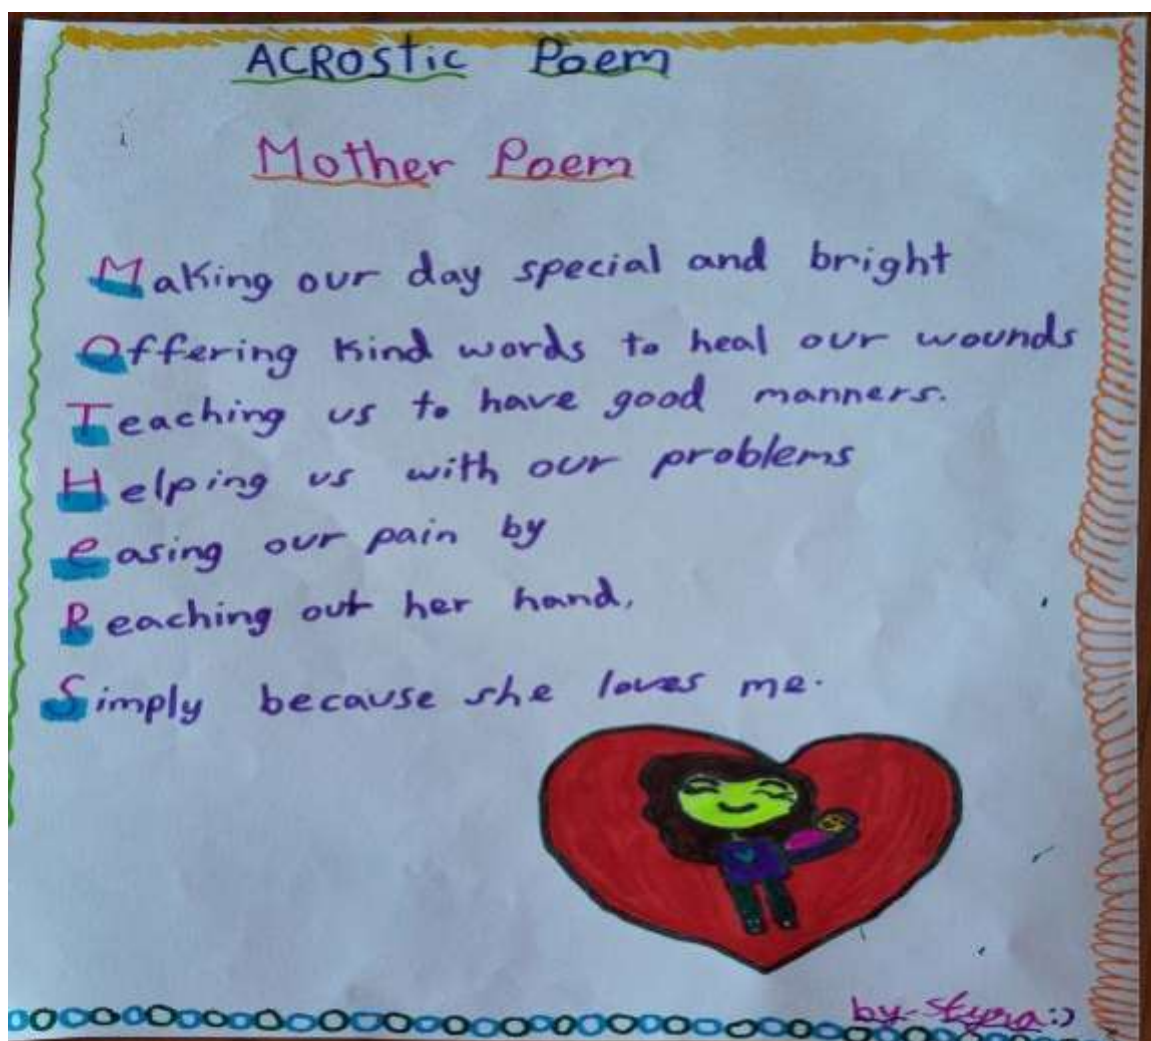 ACROStic Poem
Mother Poem
Making our day special and bright
Offering kind words to heal our wounds
Teaching us to have good manners.
Helping us with our problems
easing our pain by
Reaching out her hand,
Simply because she loves me.
by-Styra :)